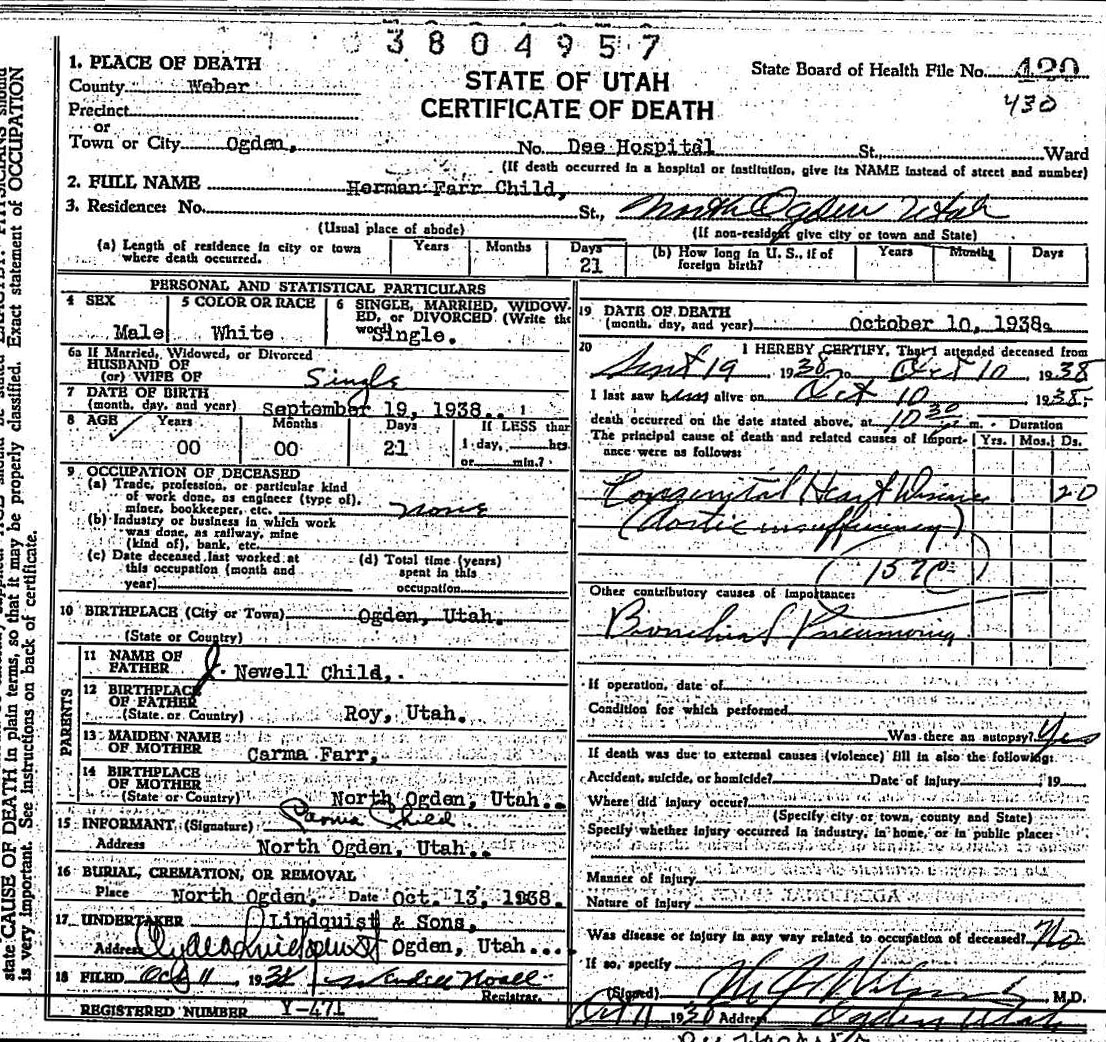 3804957
1. PLACE OF DEATH
County Weber
Precinct
or
Town or City Ogden, No. Dee Hospital St., Ward
(If death occurred in a hospital or institution, give its NAME instead of street and number)
STATE OF UTAH
CERTIFICATE OF DEATH
State Board of Health File No. 420
430
2. FULL NAME Herman Farr Child,
3. Residence: No. St., North Ogden Utah
(Usual place of abode) (If non-resident give city or town and State)
(a) Length of residence in city or town where death occurred. Years Months Days 21
(b) How long in U. S., if of foreign birth? Years Months Days
PERSONAL AND STATISTICAL PARTICULARS
4 SEX Male
5 COLOR OR RACE White
6 SINGLE, MARRIED, WIDOWED, or DIVORCED (Write the word) Single.
6a If Married, Widowed, or Divorced
HUSBAND OF
(or) WIFE OF Single
7 DATE OF BIRTH
(month, day, and year) September 19, 1938.
8 AGE Years 00 Months 00 Days 21 If LESS than 1 day, hrs. or min.?
9 OCCUPATION OF DECEASED
(a) Trade, profession, or particular kind
of work done, as engineer (type of),
miner, bookkeeper, etc. none
(b) Industry or business in which work
was done, as railway, mine
(kind of), bank, etc.
(c) Date deceased last worked at
this occupation (month and
year)
(d) Total time (years)
spent in this
occupation
10 BIRTHPLACE (City or Town) Ogden, Utah.
(State or Country)
PARENTS
11 NAME OF
FATHER J. Newell Child,
12 BIRTHPLACE
OF FATHER
(State or Country) Roy, Utah.
13 MAIDEN NAME
OF MOTHER Carma Farr,
14 BIRTHPLACE
OF MOTHER
(State or Country) North Ogden, Utah..
15 INFORMANT (Signature) Carma Child
Address North Ogden, Utah..
16 BURIAL, CREMATION, OR REMOVAL
Place North Ogden, Date Oct. 13, 1938.
17 UNDERTAKER Lindquist & Sons,
Address Ogden, Utah...
18 FILED Oct 11, 1938
Registrar.
REGISTERED NUMBER Y-471
19 DATE OF DEATH
(month, day, and year) October 10, 1938.
20 I HEREBY CERTIFY, That I attended deceased from
Sept 19 1938 to Oct 10 1938
I last saw him alive on Oct 10 1938
death occurred on the date stated above, at 10 30 m. Duration
The principal cause of death and related causes of importance were as follows: Yrs. Mos. Ds.
Congenital Heart Disease 20
(Aortic insufficiency)
Other contributory causes of importance:
Bronchial Pneumonia
If operation, date of
Condition for which performed
Was there an autopsy? Yes
If death was due to external causes (violence) fill in also the following:
Accident, suicide, or homicide? Date of Injury 19
Where did injury occur?
(Specify city or town, county and State)
Specify whether injury occurred in industry, in home, or in public place:
Manner of Injury
Nature of Injury
Was disease or injury in any way related to occupation of deceased? No
If so, specify
(Signed) M.D.
Oct 11 1938 Address Ogden Utah
state CAUSE OF DEATH in plain terms, so that it may be properly classified. Exact statement of OCCUPATION
is very important. See instructions on back of certificate.